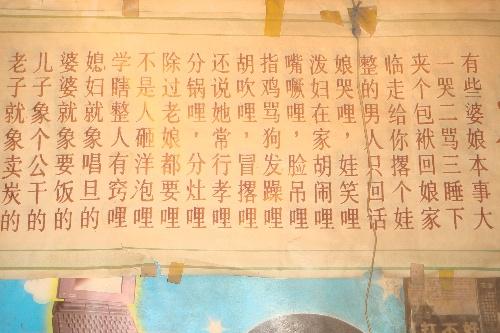 有些婆娘本事大
一哭二骂三睡下
夹个包袱回娘家
临走给你撂个娃
整的男人只回话
娘哭哩，娃笑哩
泼妇在家胡闹哩
嘴噘哩，脸吊哩
指鸡骂狗发躁哩
胡吹哩，冒撂哩
还说她常行孝哩
分锅哩，分灶哩
除过老娘都要哩
不是人砸洋泡哩
学瞎整人有窍哩
媳妇就象唱旦的
婆婆就象要饭的
儿子象个公干的
老子就象卖炭的